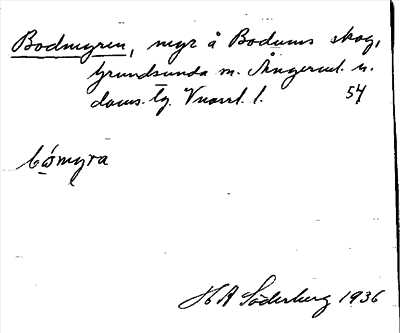 Bodmyren, myr å Bodums skog,
Grundsunda sn. Ångerml. n.
doms. tg. Vnorrl. l. 54
bómyra
H A Söderberg 1936